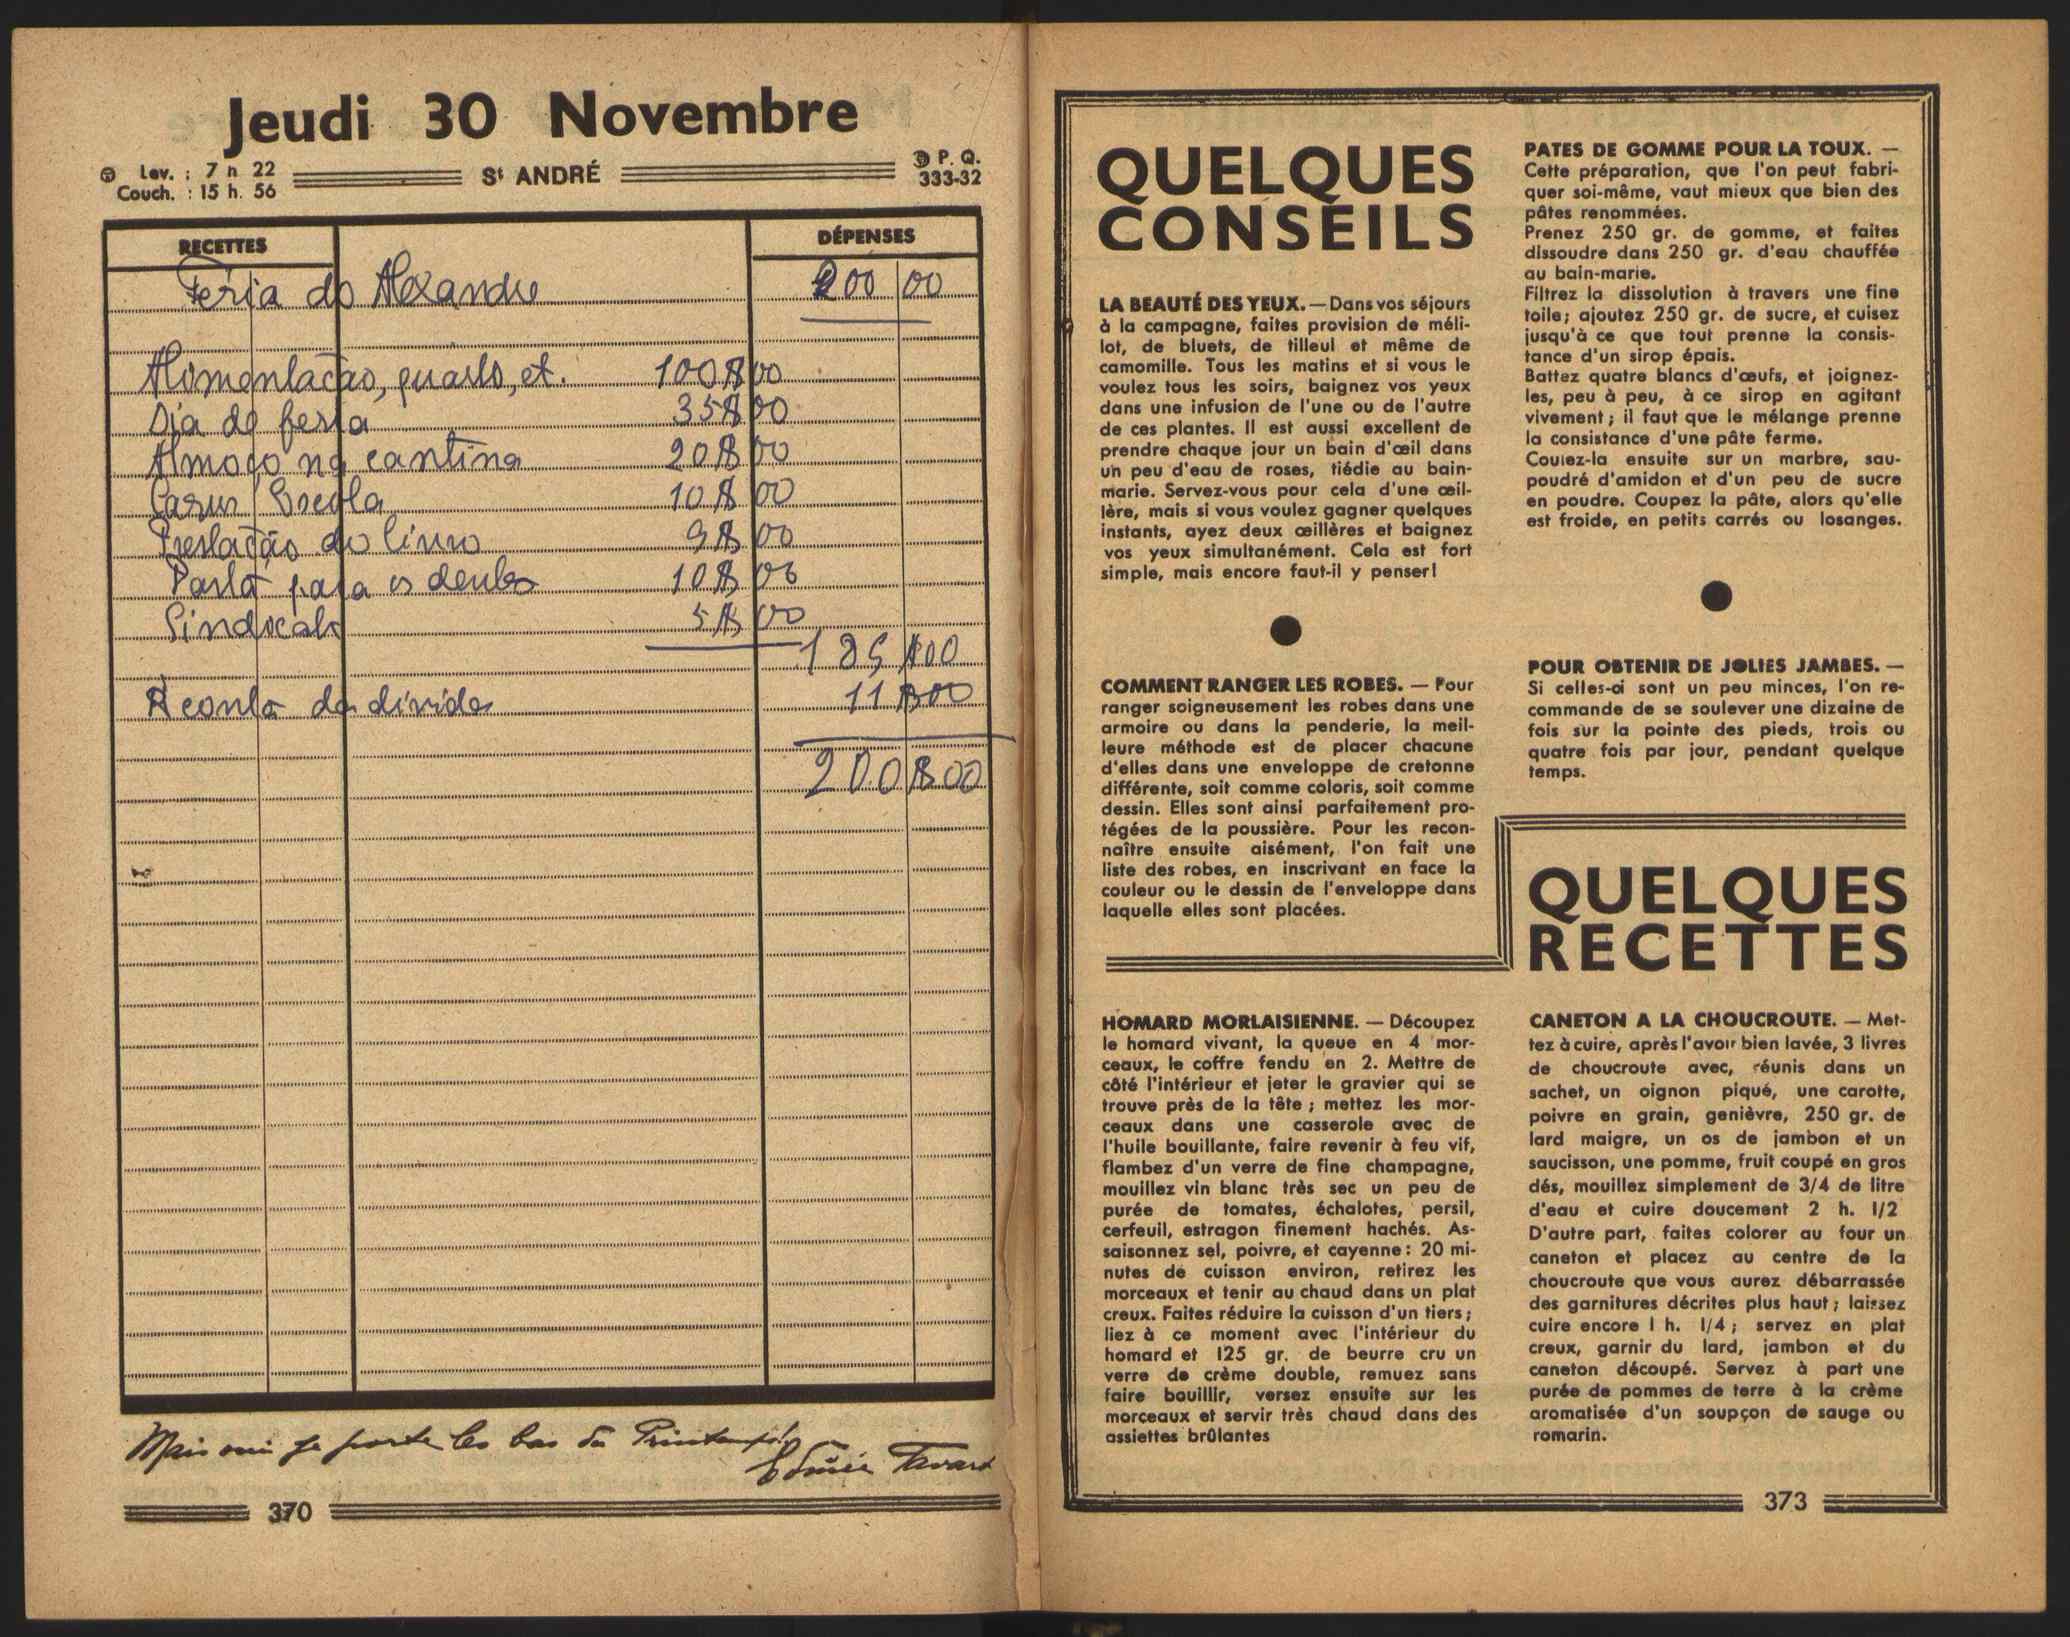 Jeudi 30 Novembre
Lev. : 7 h 22
Couch. : 15 h. 56
St ANDRÉ
P. Q.
333-32
RECETTES
DÉPENSES
Féria do Alexandre 200 00
Alimentação, quarto, et. 100$00
Dia de festa 35$00
Almoço na cantina 20$00
Escola 10$00
Prestação do livro 9$00
Pasta para os dentes 10$00
Sindicato 5$00
$00
A conta da divida 11$00
200$00
Mais oui je porte les bas du Printemps!
370
QUELQUES
CONSEILS
LA BEAUTÉ DES YEUX. — Dans vos séjours
à la campagne, faites provision de méli-
lot, de bluets, de tilleul et même de
camomille. Tous les matins et si vous le
voulez tous les soirs, baignez vos yeux
dans une infusion de l'une ou de l'autre
de ces plantes. Il est aussi excellent de
prendre chaque jour un bain d'œil dans
un peu d'eau de roses, tiédie au bain-
marie. Servez-vous pour cela d'une œil-
lère, mais si vous voulez gagner quelques
instants, ayez deux œillères et baignez
vos yeux simultanément. Cela est fort
simple, mais encore faut-il y penser!
COMMENT RANGER LES ROBES. — Pour
ranger soigneusement les robes dans une
armoire ou dans la penderie, la meil-
leure méthode est de placer chacune
d'elles dans une enveloppe de cretonne
différente, soit comme coloris, soit comme
dessin. Elles sont ainsi parfaitement pro-
tégées de la poussière. Pour les recon-
naître ensuite aisément, l'on fait une
liste des robes, en inscrivant en face la
couleur ou le dessin de l'enveloppe dans
laquelle elles sont placées.
PATES DE GOMME POUR LA TOUX. —
Cette préparation, que l'on peut fabri-
quer soi-même, vaut mieux que bien des
pâtes renommées.
Prenez 250 gr. de gomme, et faites
dissoudre dans 250 gr. d'eau chauffée
au bain-marie.
Filtrez la dissolution à travers une fine
toile; ajoutez 250 gr. de sucre, et cuisez
jusqu'à ce que tout prenne la consis-
tance d'un sirop épais.
Battez quatre blancs d'œufs, et joignez-
les, peu à peu, à ce sirop en agitant
vivement; il faut que le mélange prenne
la consistance d'une pâte ferme.
Coulez-la ensuite sur un marbre, sau-
poudré d'amidon et d'un peu de sucre
en poudre. Coupez la pâte, alors qu'elle
est froide, en petits carrés ou losanges.
POUR OBTENIR DE JOLIES JAMBES. —
Si celles-ci sont un peu minces, l'on re-
commande de se soulever une dizaine de
fois sur la pointe des pieds, trois ou
quatre fois par jour, pendant quelque
temps.
QUELQUES
RECETTES
HOMARD MORLAISIENNE. — Découpez
le homard vivant, la queue en 4 mor-
ceaux, le coffre fendu en 2. Mettre de
côté l'intérieur et jeter le gravier qui se
trouve près de la tête; mettez les mor-
ceaux dans une casserole avec de
l'huile bouillante, faire revenir à feu vif,
flambez d'un verre de fine champagne,
mouillez vin blanc très sec un peu de
purée de tomates, échalotes, persil,
cerfeuil, estragon finement hachés. As-
saisonnez sel, poivre, et cayenne: 20 mi-
nutes de cuisson environ, retirez les
morceaux et tenir au chaud dans un plat
creux. Faites réduire la cuisson d'un tiers;
liez à ce moment avec l'intérieur du
homard et 125 gr. de beurre cru un
verre de crème double, remuez sans
faire bouillir, versez ensuite sur les
morceaux et servir très chaud dans des
assiettes brûlantes
CANETON A LA CHOUCROUTE. — Met-
tez à cuire, après l'avoir bien lavée, 3 livres
de choucroute avec, réunis dans un
sachet, un oignon piqué, une carotte,
poivre en grain, genièvre, 250 gr. de
lard maigre, un os de jambon et un
saucisson, une pomme, fruit coupé en gros
dés, mouillez simplement de 3/4 de litre
d'eau et cuire doucement 2 h. 1/2
D'autre part, faites colorer au four un
caneton et placez au centre de la
choucroute que vous aurez débarrassée
des garnitures décrites plus haut; laissez
cuire encore 1 h. 1/4; servez en plat
creux, garnir du lard, jambon et du
caneton découpé. Servez à part une
purée de pommes de terre à la crème
aromatisée d'un soupçon de sauge ou
romarin.
373